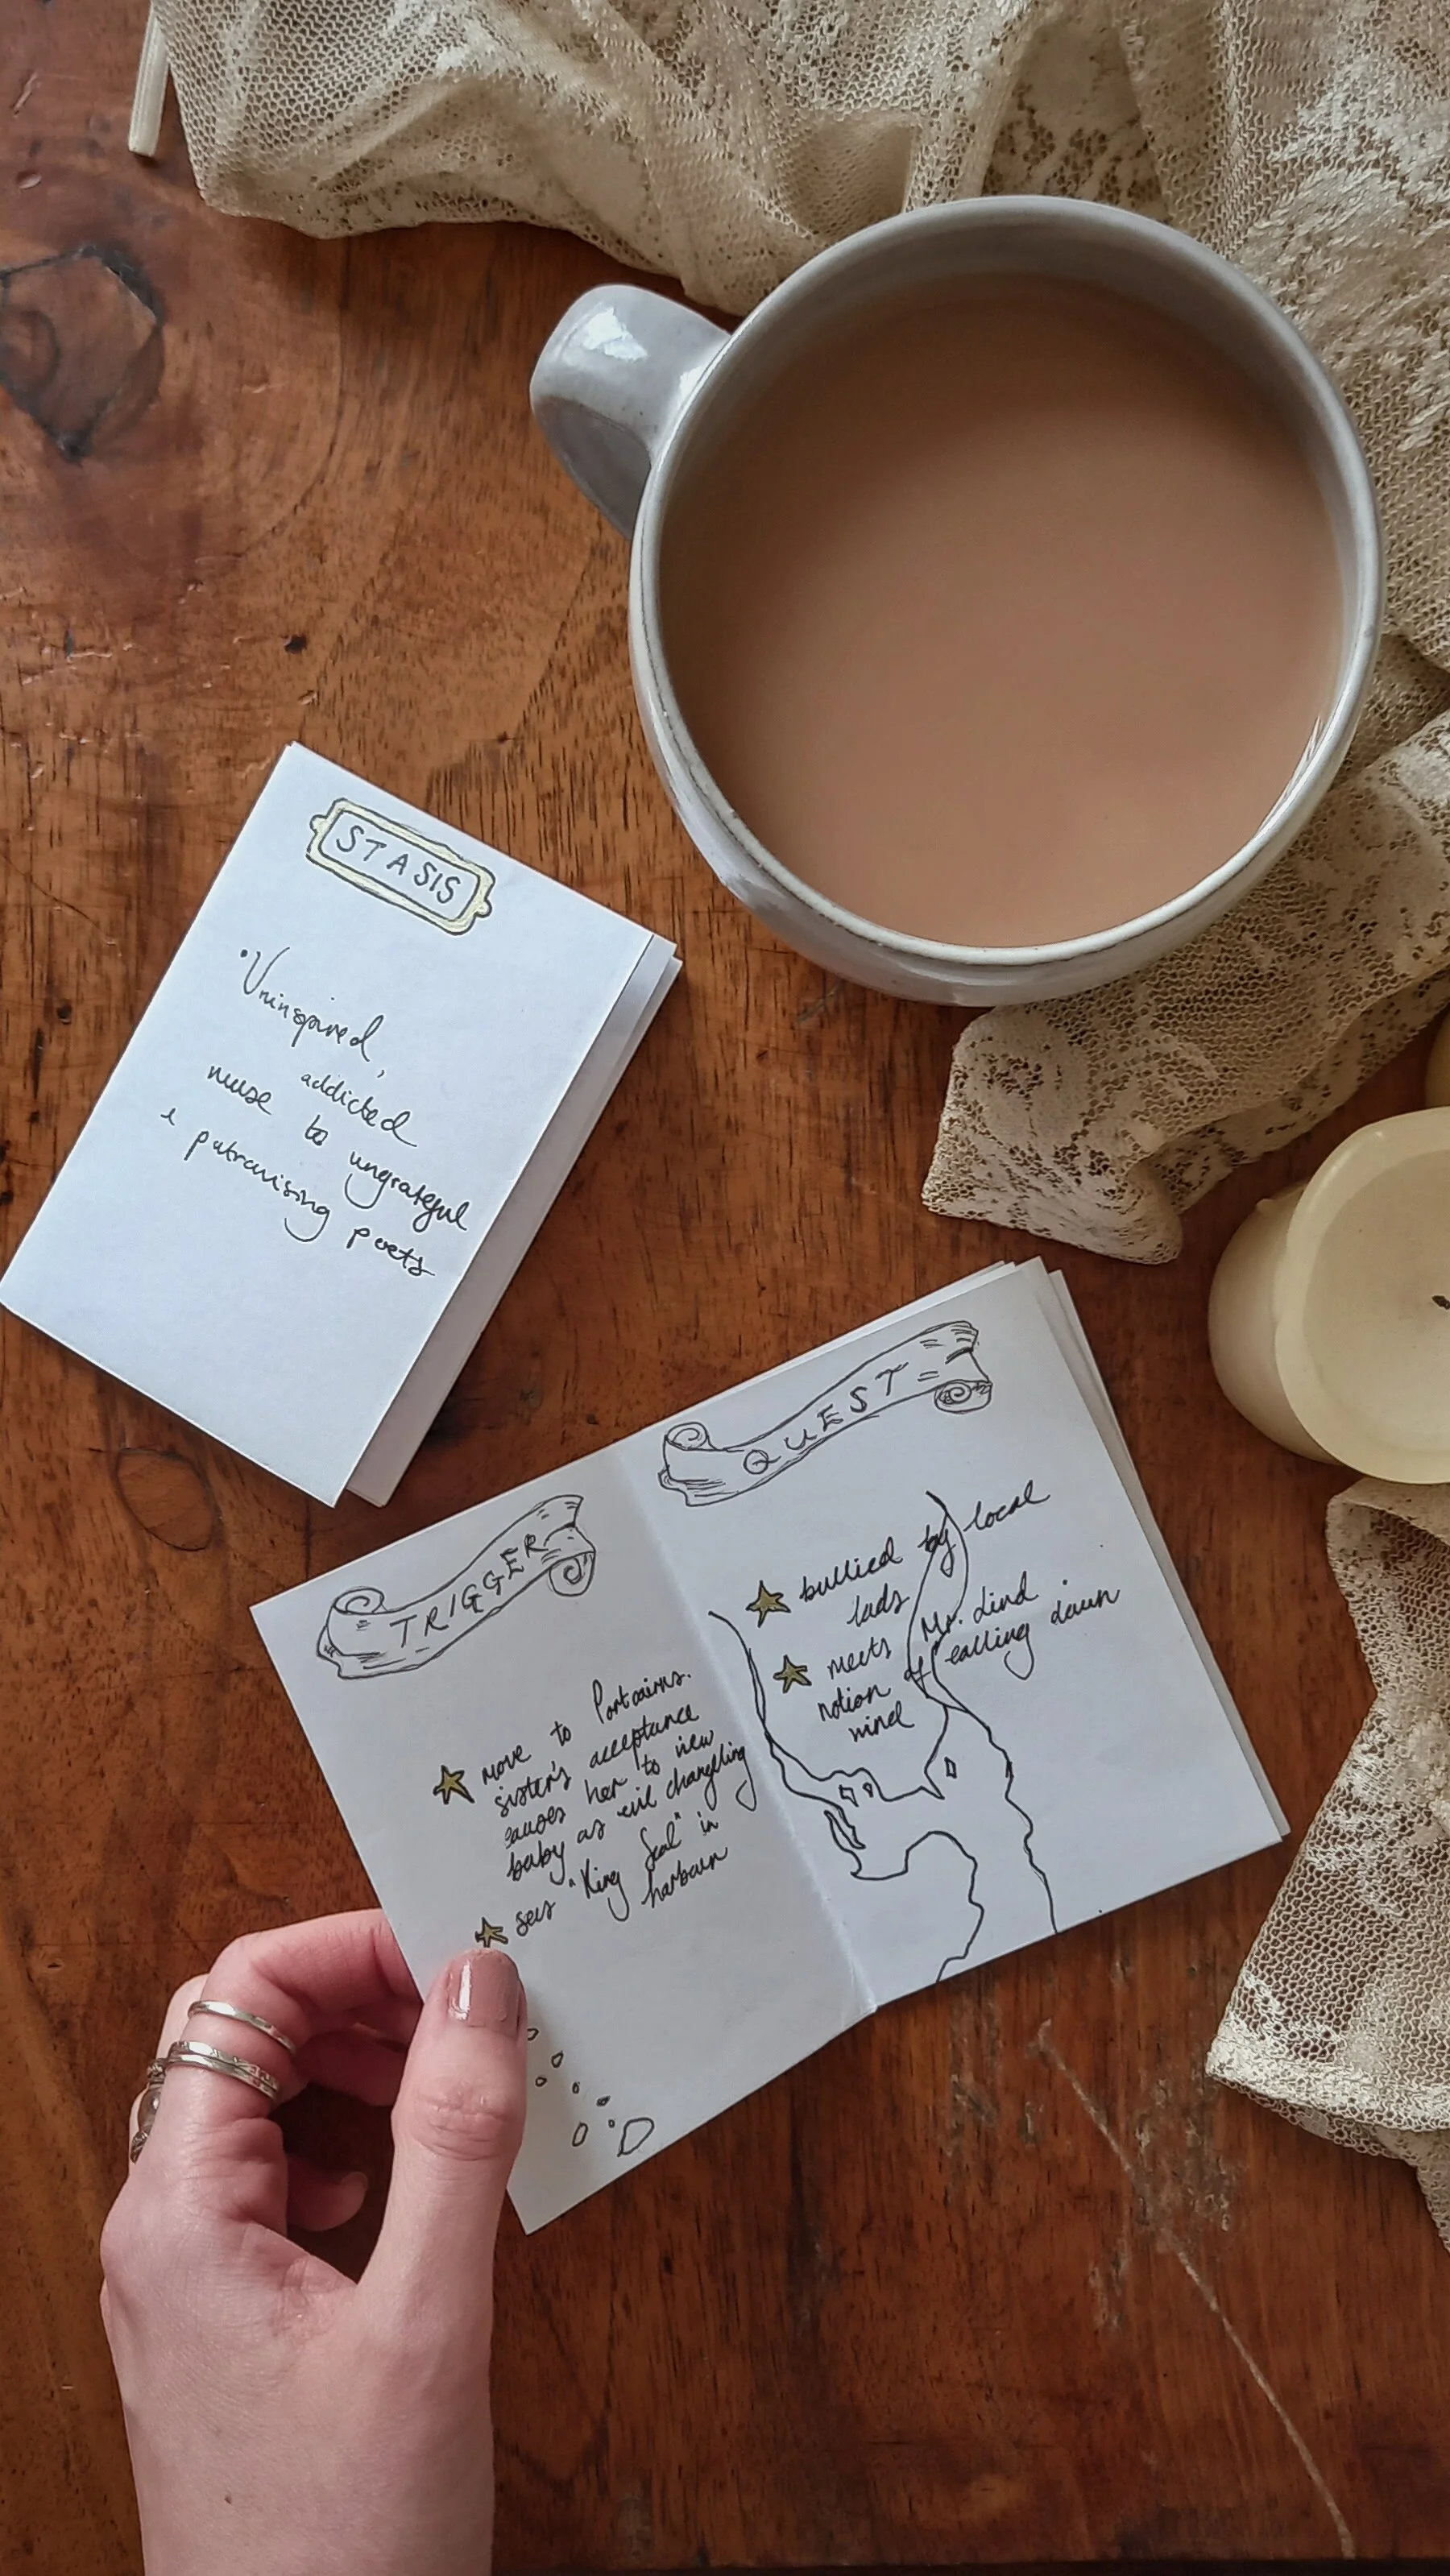 STASIS
• Uninspired,
addicted
muse to ungrateful
& patronising poets
TRIGGER
move to Portcairns.
sister's acceptance
causes her to view
baby as evil changeling
sees "King Seal" in
harbour
QUEST
bullied by local
lads
meets Mr. Lind
notion of calling down
wind